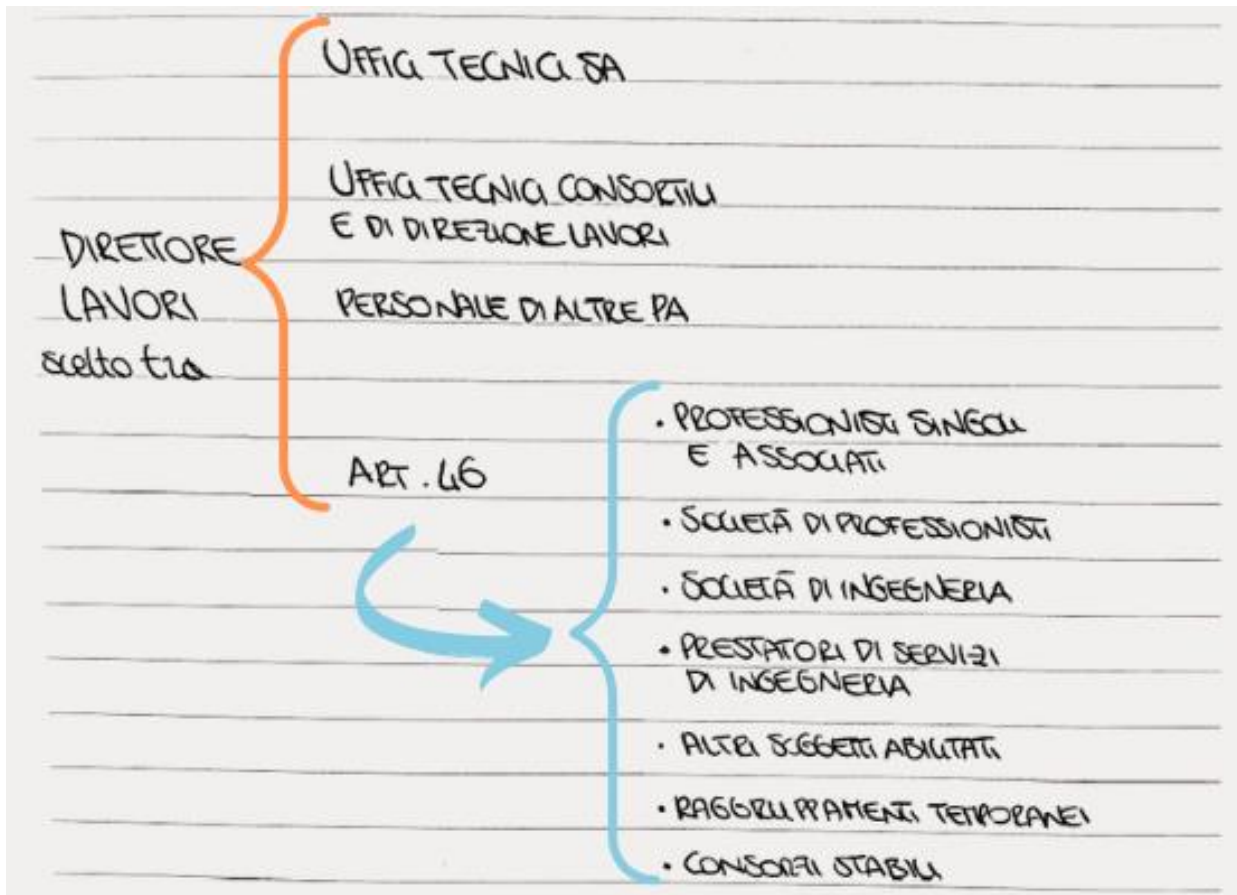 UFFICI TECNICI SA
UFFICI TECNICI CONSORTILI
E DI DIREZIONE LAVORI
DIRETTORE
LAVORI
scelto tra
PERSONALE DI ALTRE PA
ART. 46
• PROFESSIONISTI SINGOLI
E ASSOCIATI
• SOCIETÀ DI PROFESSIONISTI
• SOCIETÀ DI INGEGNERIA
• PRESTATORI DI SERVIZI
DI INGEGNERIA
• ALTRI SOGGETTI ABILITATI
• RAGGRUPPAMENTI TEMPORANEI
• CONSORZI STABILI